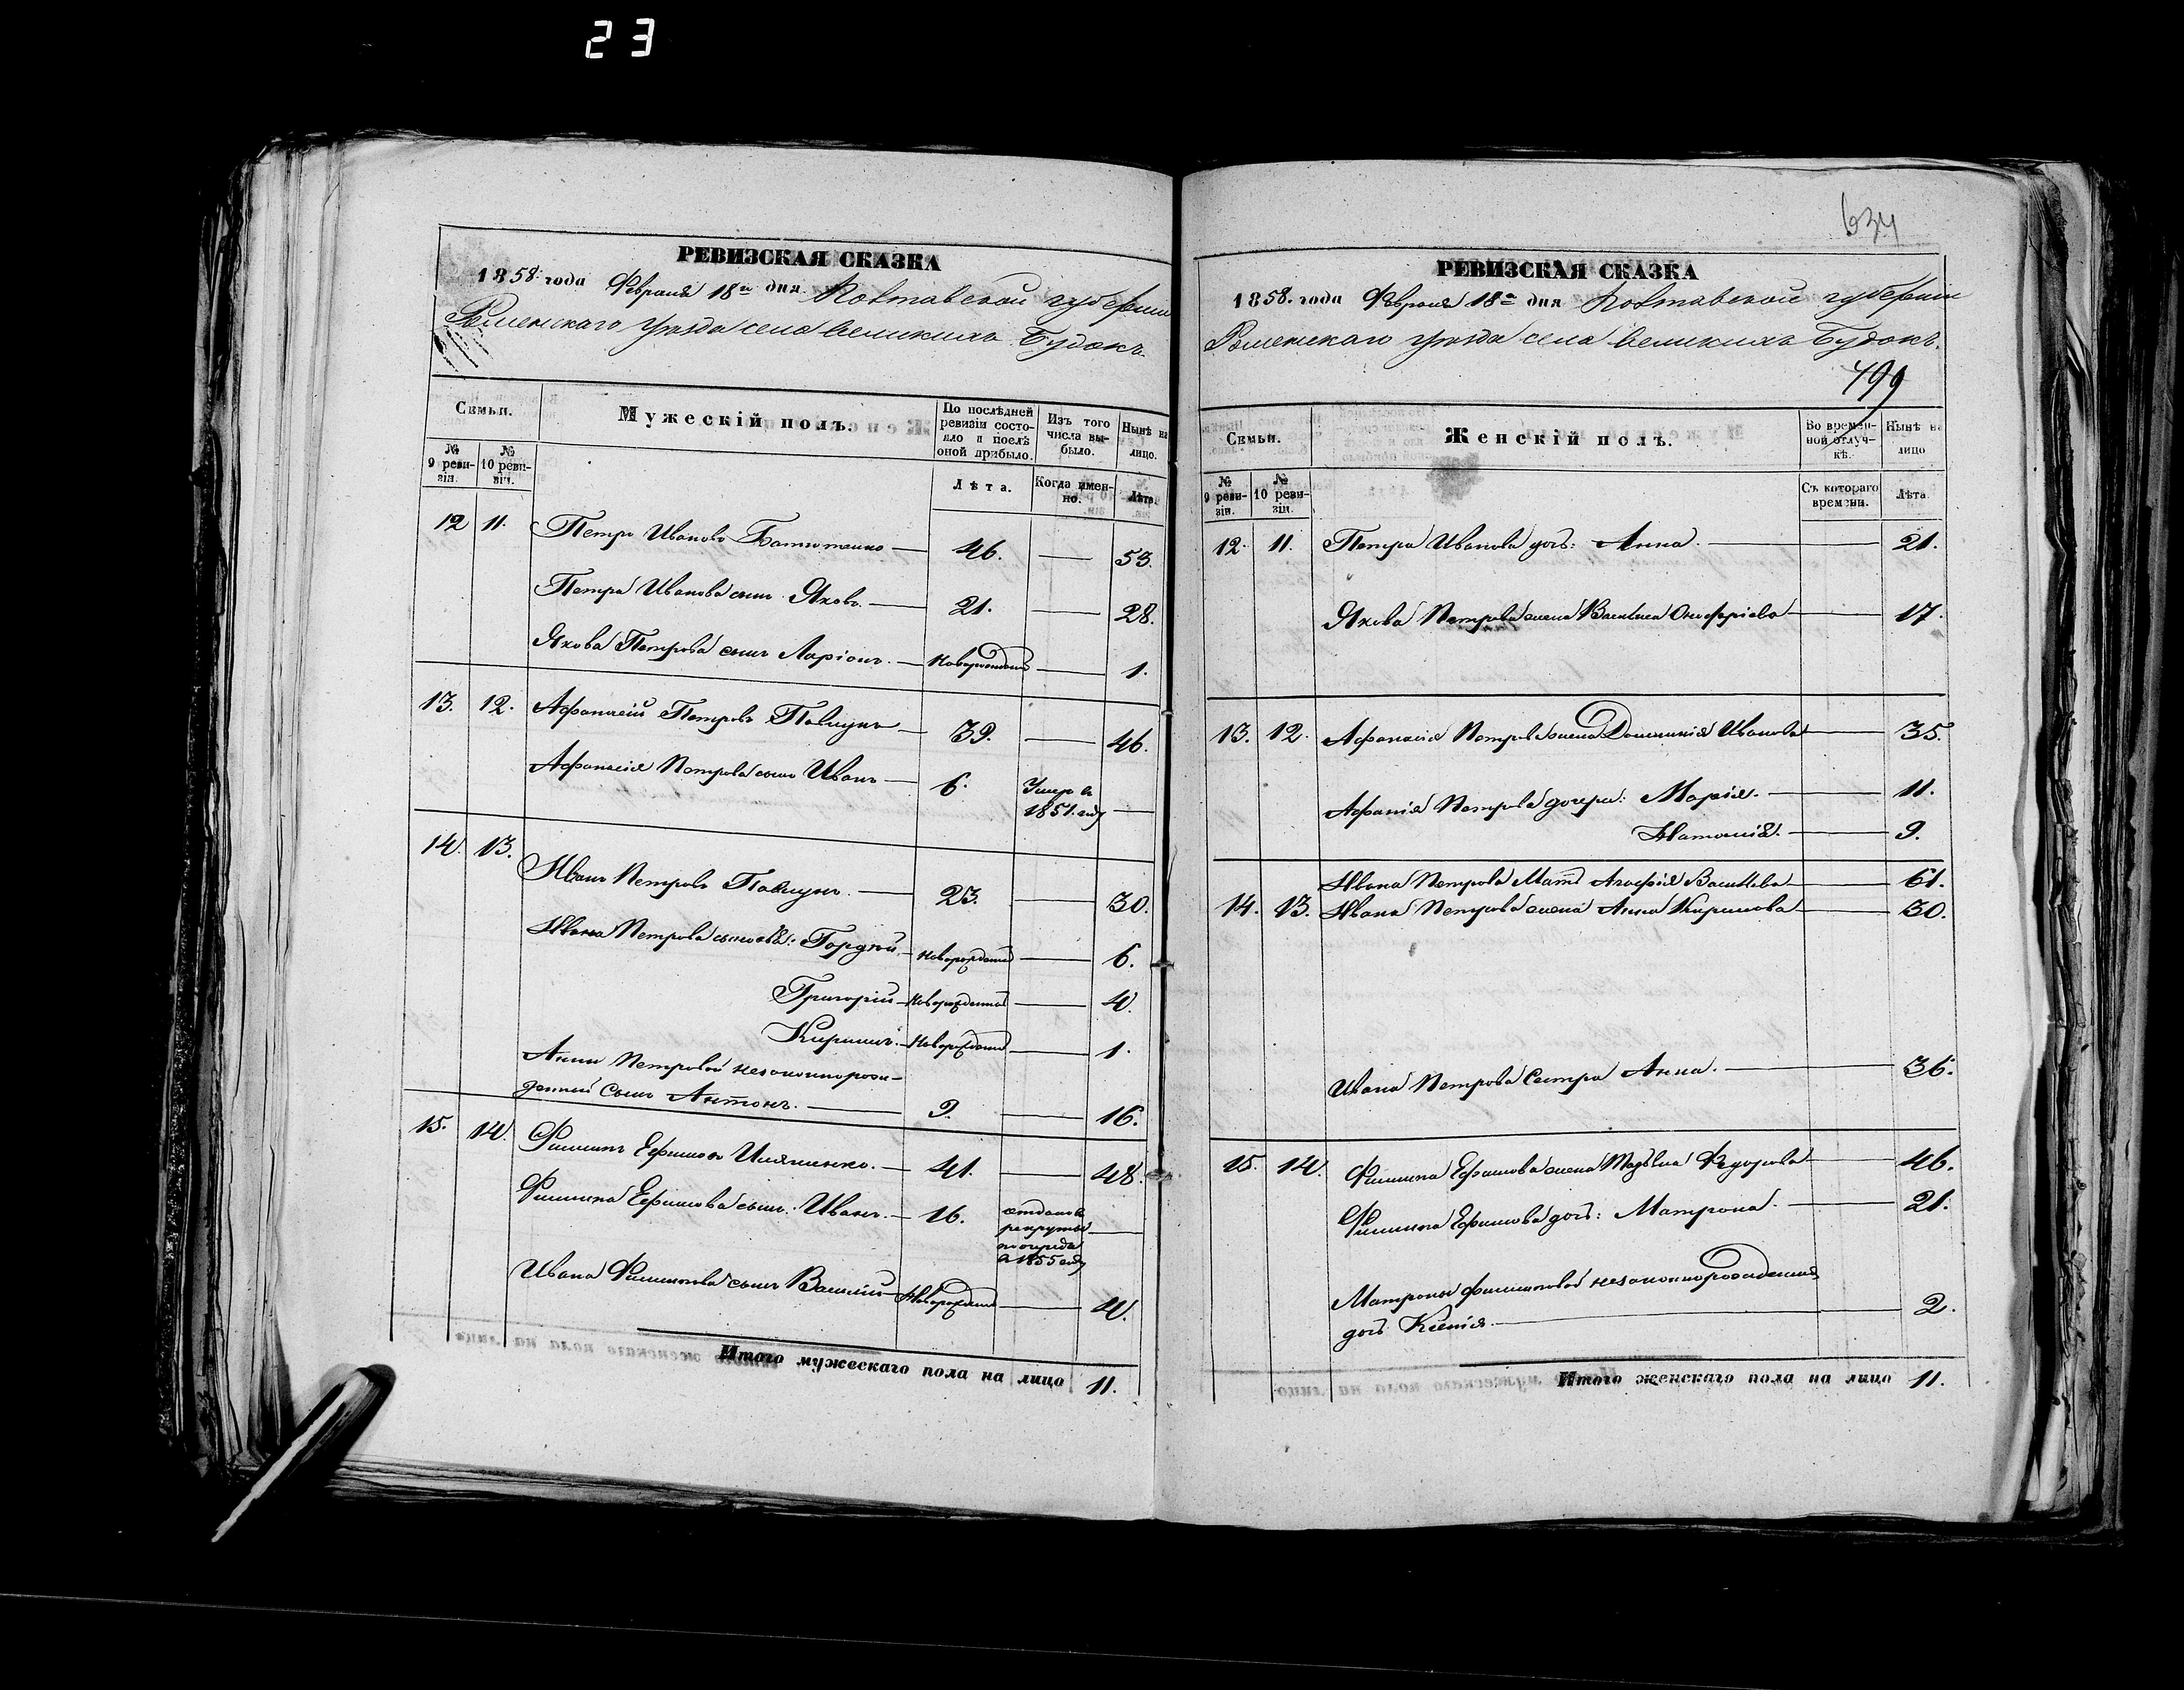 23
РЕВИЗСКАЯ СКАЗКА
1858: года Февраля 18го дня Полтавской губернии
Роменскаго уезда села Великихъ Будокъ.
Семьи.
Мужескій полъ.
По послѣдней ревизіи состояло и послѣ оной прибыло.
Изъ того числа выбыло.
Нынѣ на лицо.
№ 9 ревизіи.
№ 10 ревизіи.
Лѣта.
Когда именно.
Лѣта.
12 11. Петръ Ивановъ — 46. — 53.
Петра Иванова сынъ Яковъ. — 21. — 28.
Якова Петрова сынъ Ларіонъ. — новорожденъ — 1.
13. 12. Афанасій Петровъ Павлунъ — 39. — 46.
Афанасія Петрова сынъ Иванъ — 6. Умеръ въ 1851. году —
14. 13. Иванъ Петровъ Павлунъ. — 23. — 30.
Ивана Петрова сыновья: Гордѣй — новорожденъ — 6.
Григорій — новорожденъ — 4.
Кирилъ. — новорожденъ — 1.
Анны Петровой незаконнорож-
денный сынъ Антонъ. — 9. — 16.
15. 14. Филипъ Ефимовъ Ильяшенко. — 41. — 48.
Филипа Ефимова сынъ: Иванъ. — 16. отданъ въ рекруты 1855 году —
Ивана Филипова сынъ Василій — новорожденъ — 4.
Итого мужескаго пола на лицо 11.
634
РЕВИЗСКАЯ СКАЗКА
1858. года Февраля 18го дня Полтавской губерніи
Роменскаго уезда села Великихъ Будокъ.
499
Семьи.
Женскій полъ.
Во временной отлучкѣ.
Нынѣ на лицо
№ 9 ревизіи.
№ 10 ревизіи.
Съ котораго времени.
Лѣта.
12. 11. Петра Иванова дочь: Анна. — 21.
Якова Петрова жена Василиса Онофріева — 17.
13. 12. Афанасія Петрова жена Домникія Иванова — 35.
Афанасія Петрова дочери: Марія. — 11.
Наталія. — 9.
Ивана Петрова Мать Агафія Васильева — 61.
14. 13. Ивана Петрова жена Анна Кирилова — 30.
Ивана Петрова сестра Анна. — 36.
15. 14. Филипа Ефимова жена Федорова — 46.
Филипа Ефимова дочь: Матрона. — 21.
Матроны Филиповой незаконнорожденная
дочь Ксенія. — 2.
Итого женскаго пола на лицо 11.